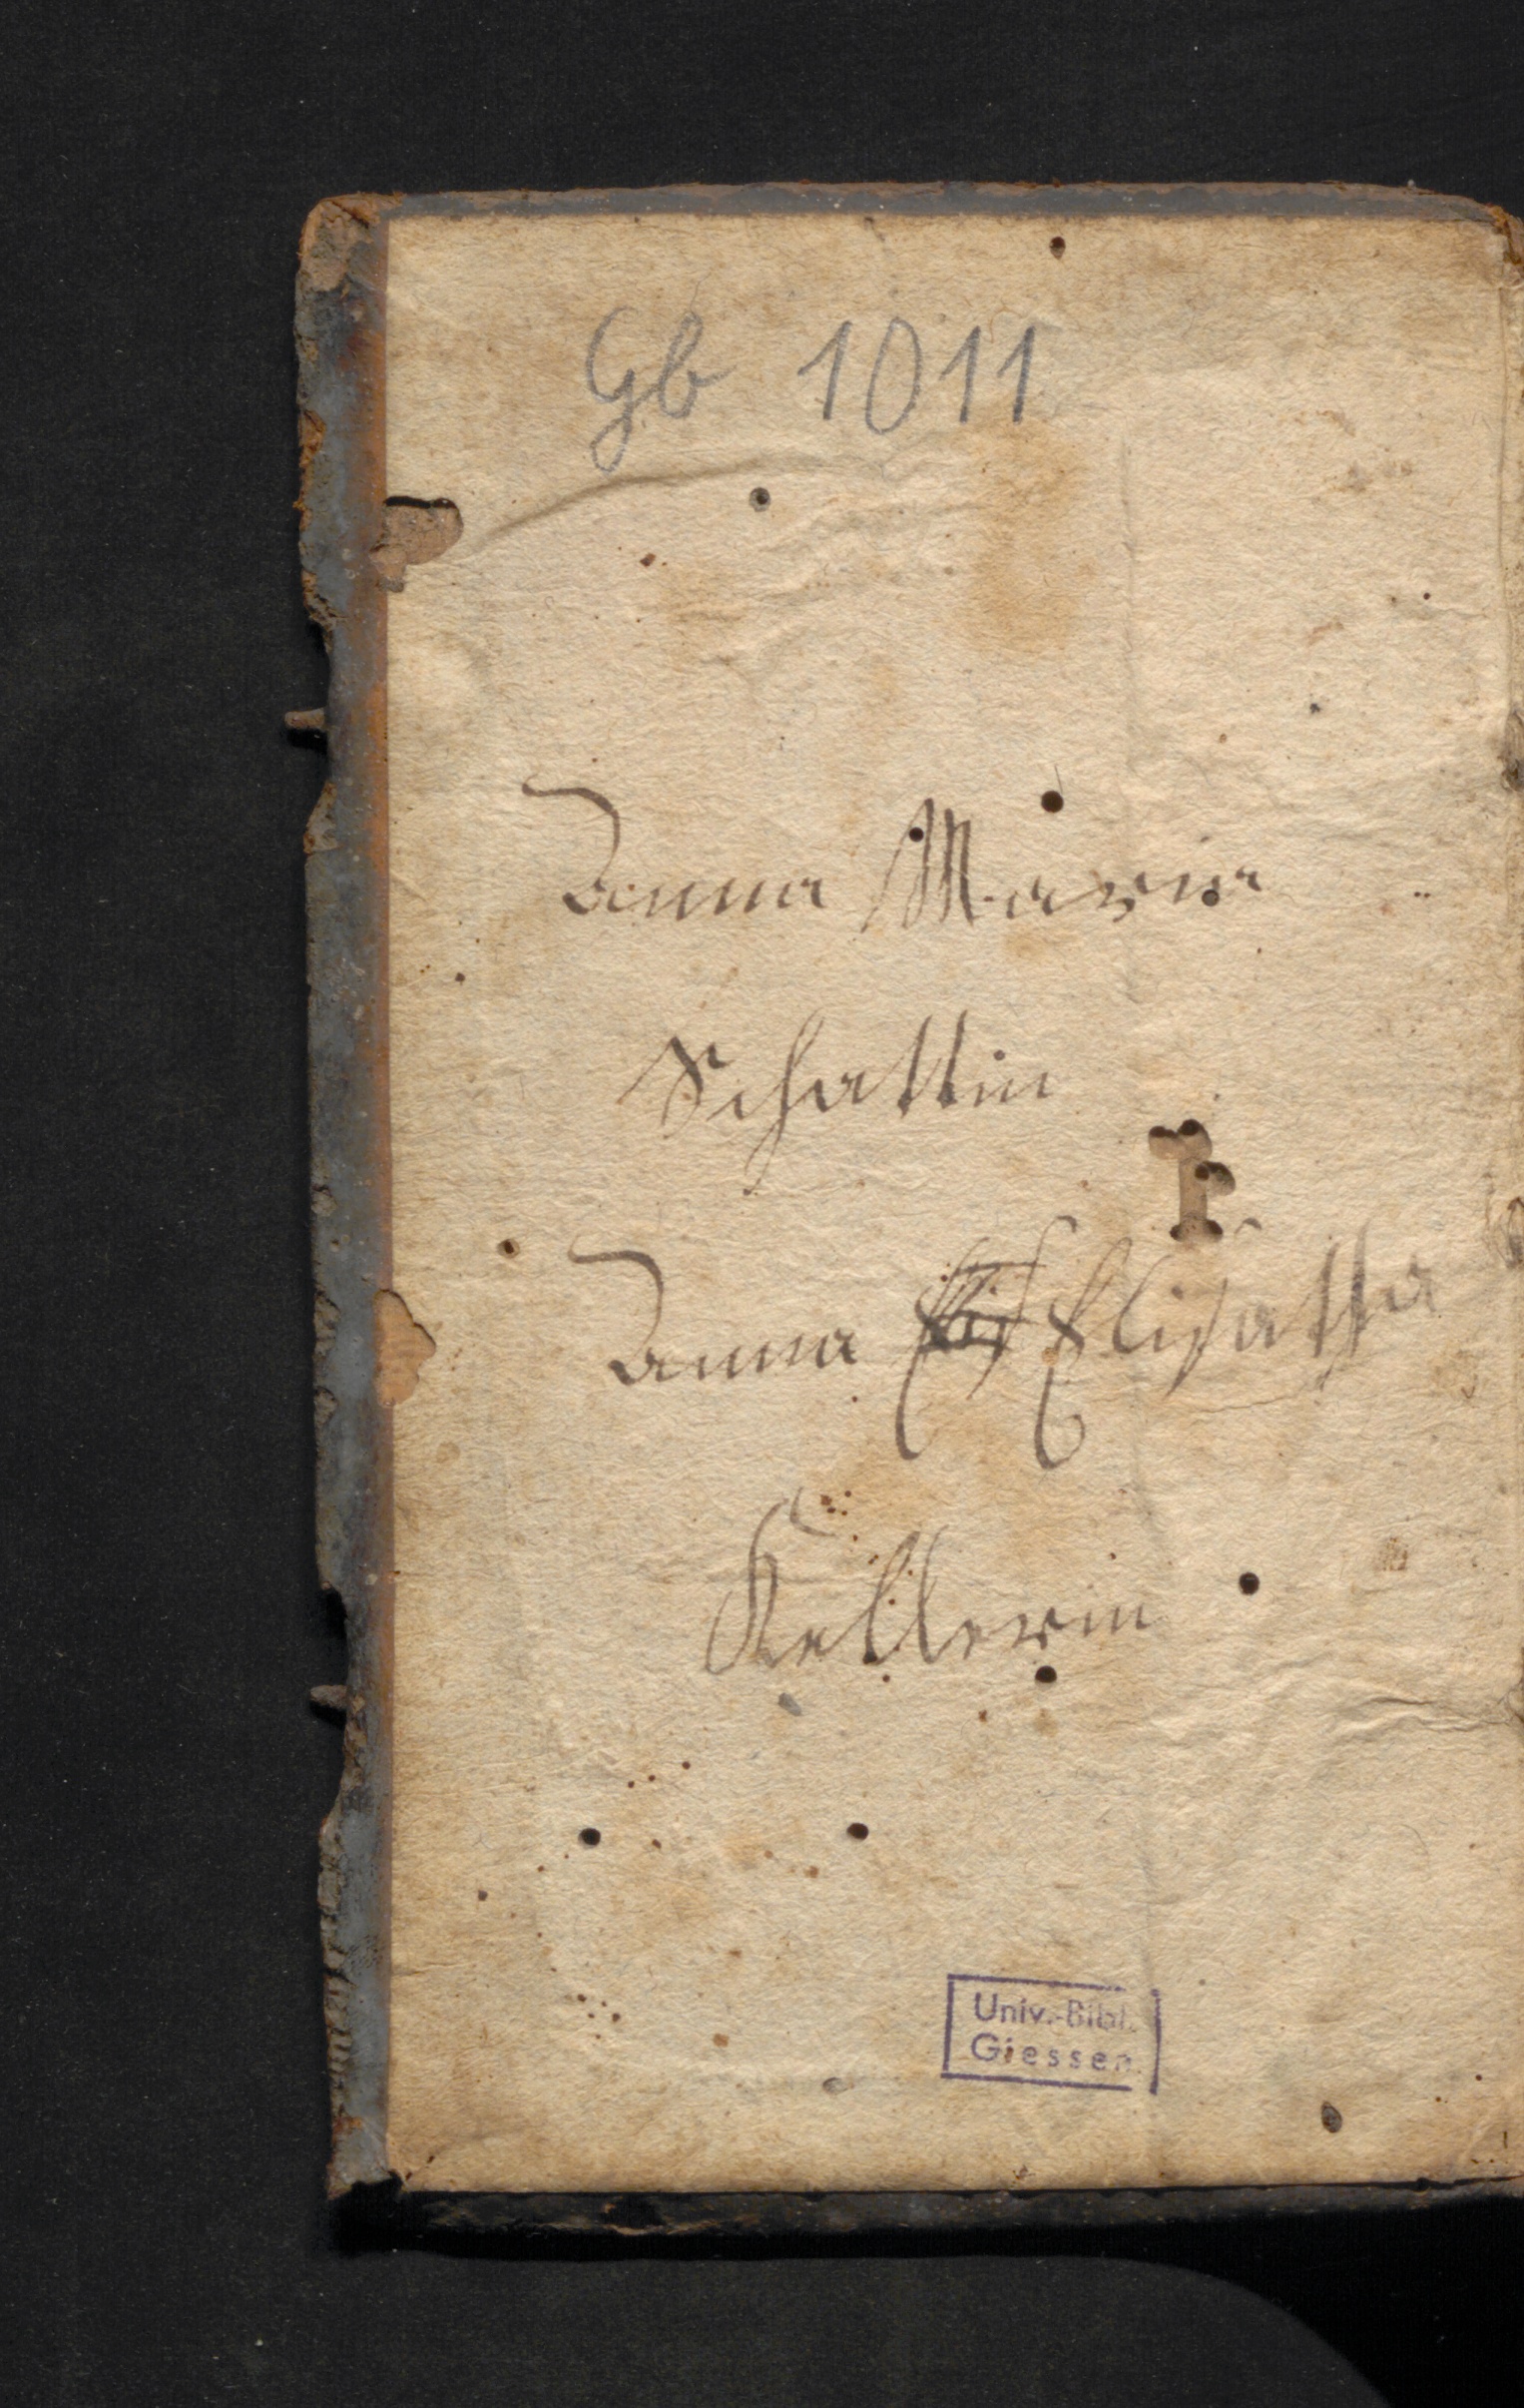 Gb 1011
Anna Maria
Schattin
Anna Elis Elisatha
Kellerin
Univ.-Bibl.
Giessen